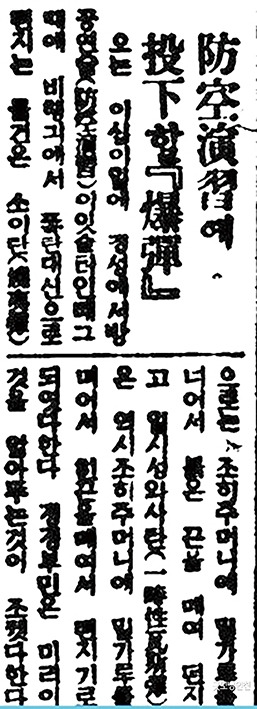 防空演習에
投下할『爆彈』
오는 이십이일에 경성에서방
공연습(防空演習)이잇슬터인데그
때에 비행긔에서 폭탄대신으로
떤지는 물건은 소이탄(燒夷彈)
으로는 조희주머니에 밀가루를
너어서 붉은 끈을 매여 던지
고 일시성와사탄(一時性瓦斯彈)
은 역시조희주머니에 밀가루를
너어서 떤지기로
되엿다한다 경성부민은 미리이
것을 알아두는것이 조켓다한다